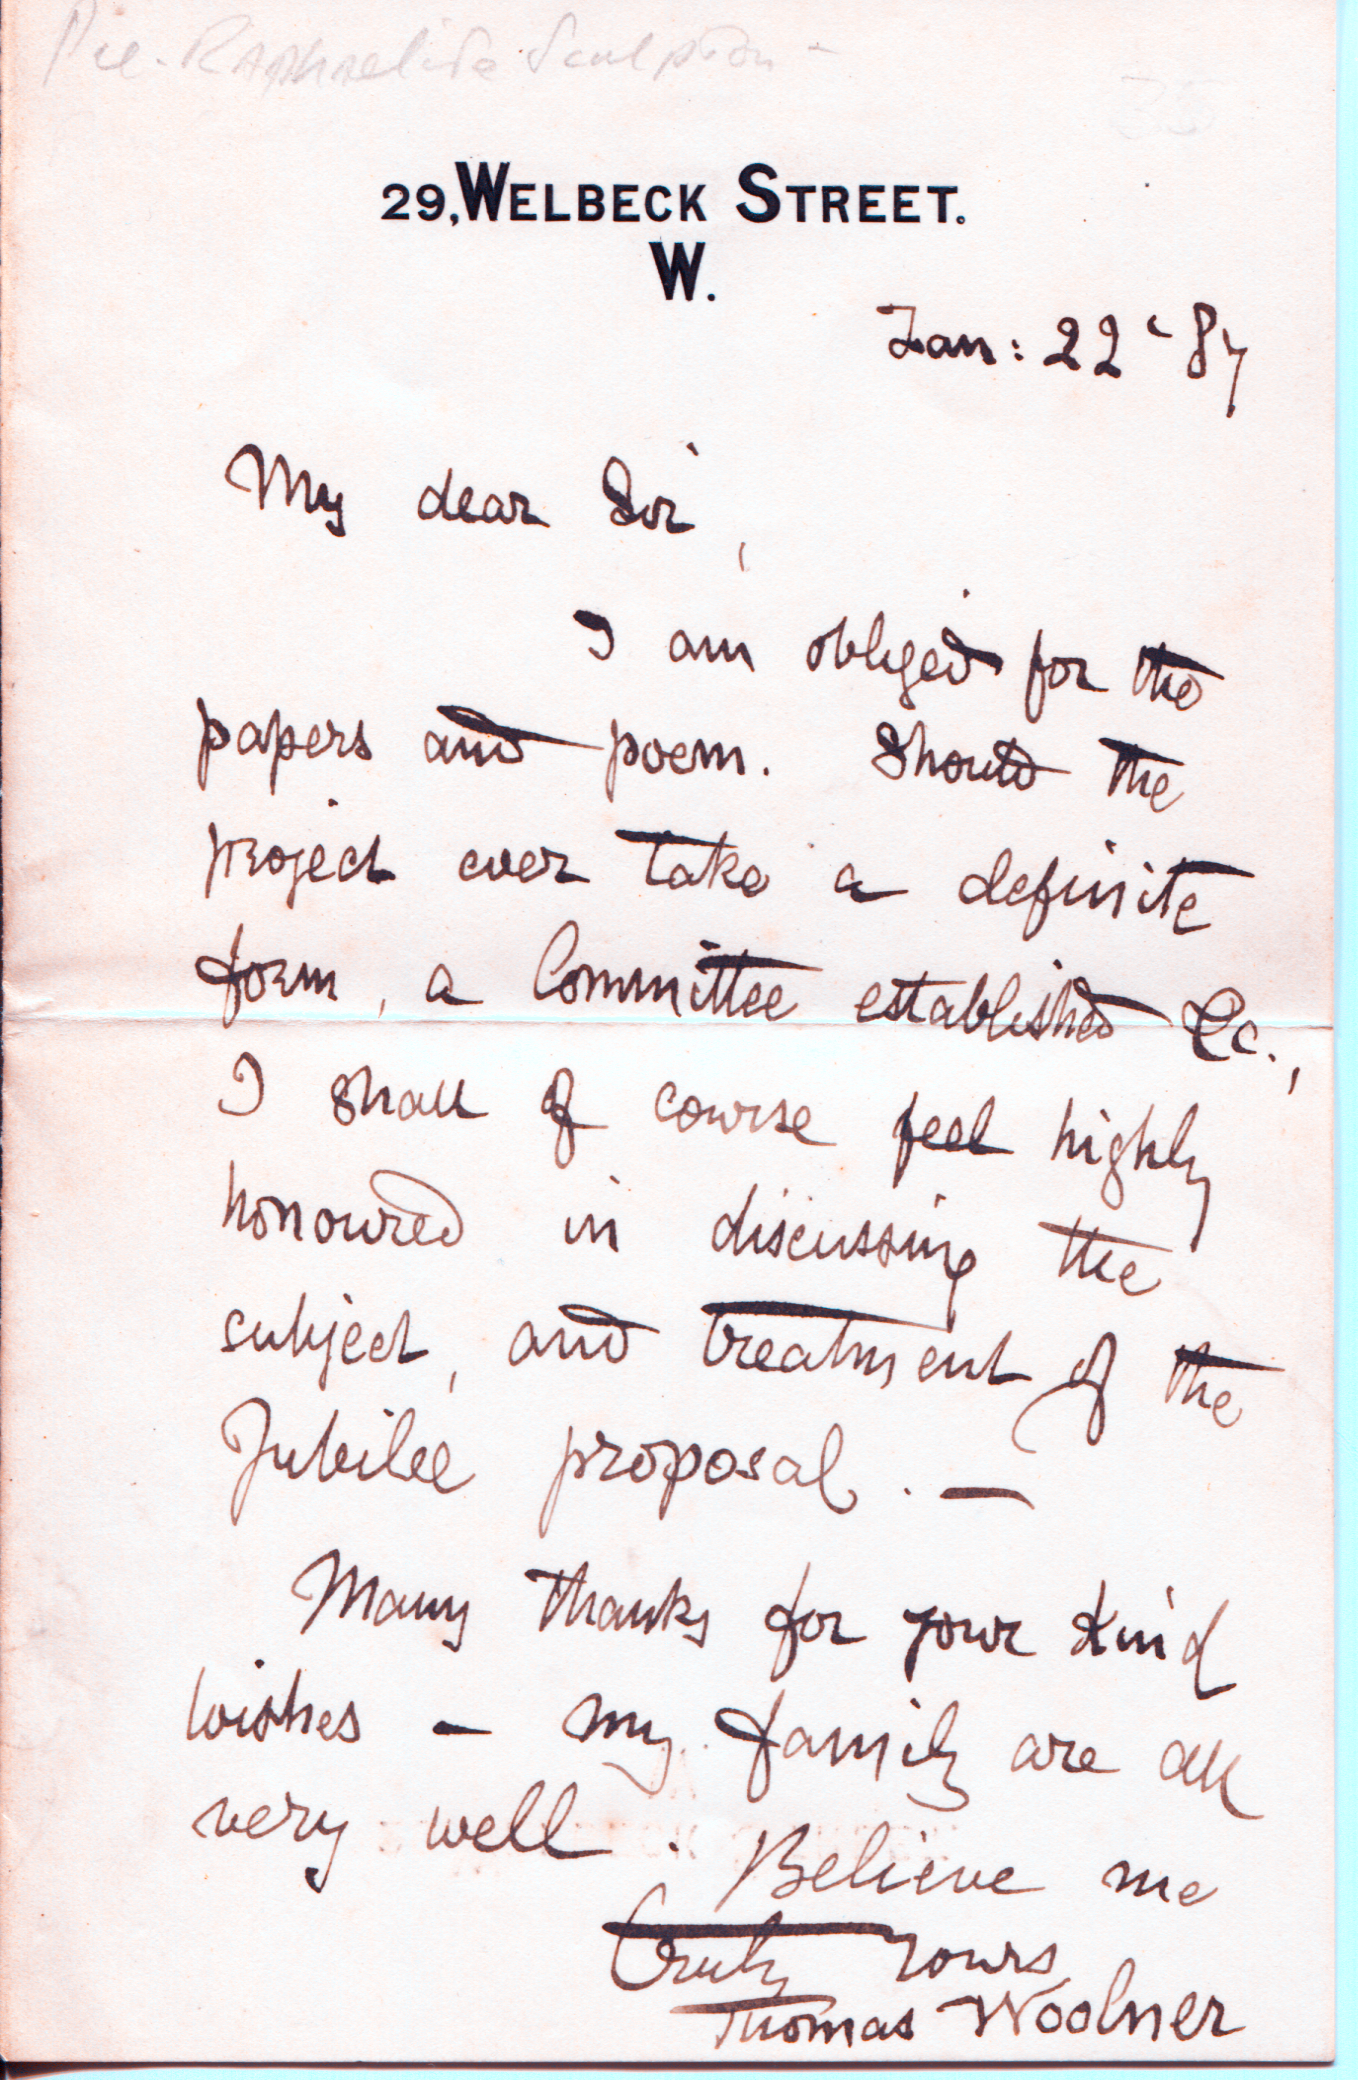 Pre-Raphaelite Sculptor -
35
29, WELBECK STREET.
W.
Jan: 22 - 87
My dear Sir,
I am obliged for the
papers and poem. Should the
project ever take a definite
form, a Committee established &c.,
I shall of course feel highly
honoured in discussing the
subject, and treatment of the
Jubilee proposal. —
Many thanks for your kind
wishes - my family are all
very well. Believe me
Truly Yours
Thomas Woolner